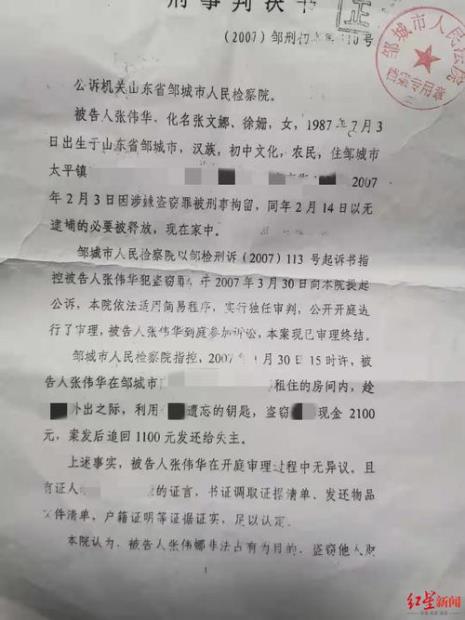 刑事判决书
正
(2007)邹刑初字第110号
邹城市人民法院
档案专用章
公诉机关山东省邹城市人民检察院。
被告人张伟华,化名张文娜、徐娟,女,1987年7月3
日出生于山东省邹城市,汉族,初中文化,农民,住邹城市
太平镇 2007
年2月3日因涉嫌盗窃罪被刑事拘留,同年2月14日以无
逮捕的必要被释放,现在家中。
邹城市人民检察院以邹检刑诉(2007)113号起诉书指
控被告人张伟华犯盗窃罪,于2007年3月30日向本院提起
公诉,本院依法适用简易程序,实行独任审判,公开开庭进
行了审理,被告人张伟华到庭参加诉讼,本案现已审理终结。
邹城市人民检察院指控,2007年1月30日15时许,被
告人张伟华在邹城市 租住的房间内,趁
外出之际,利用 遗忘的钥匙,盗窃 现金2100
元,案发后追回1100元发还给失主。
上述事实,被告人张伟华在开庭审理过程中无异议,且
有证人 的证言,书证调取证据清单、发还物品
文件清单,户籍证明等证据证实,足以认定。
本院认为,被告人张伟娜非法占有为目的,盗窃他人财
1
红星新闻